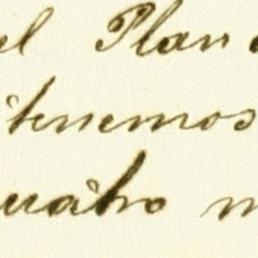 el Plan
tenemos
cuatro